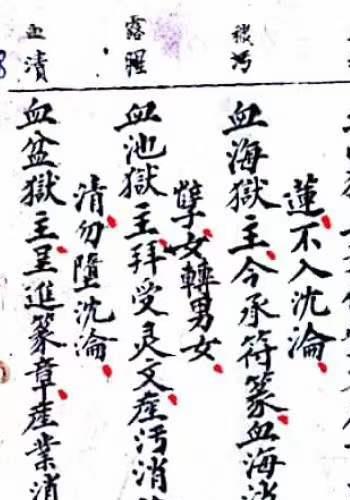 穢污
露腥
血漬
蓮不入沈淪
血海獄主今承符篆血海消
孽女轉男女
血池獄主拜受灵文產污消
清勿墮沈淪
血盆獄主呈進篆章產業消